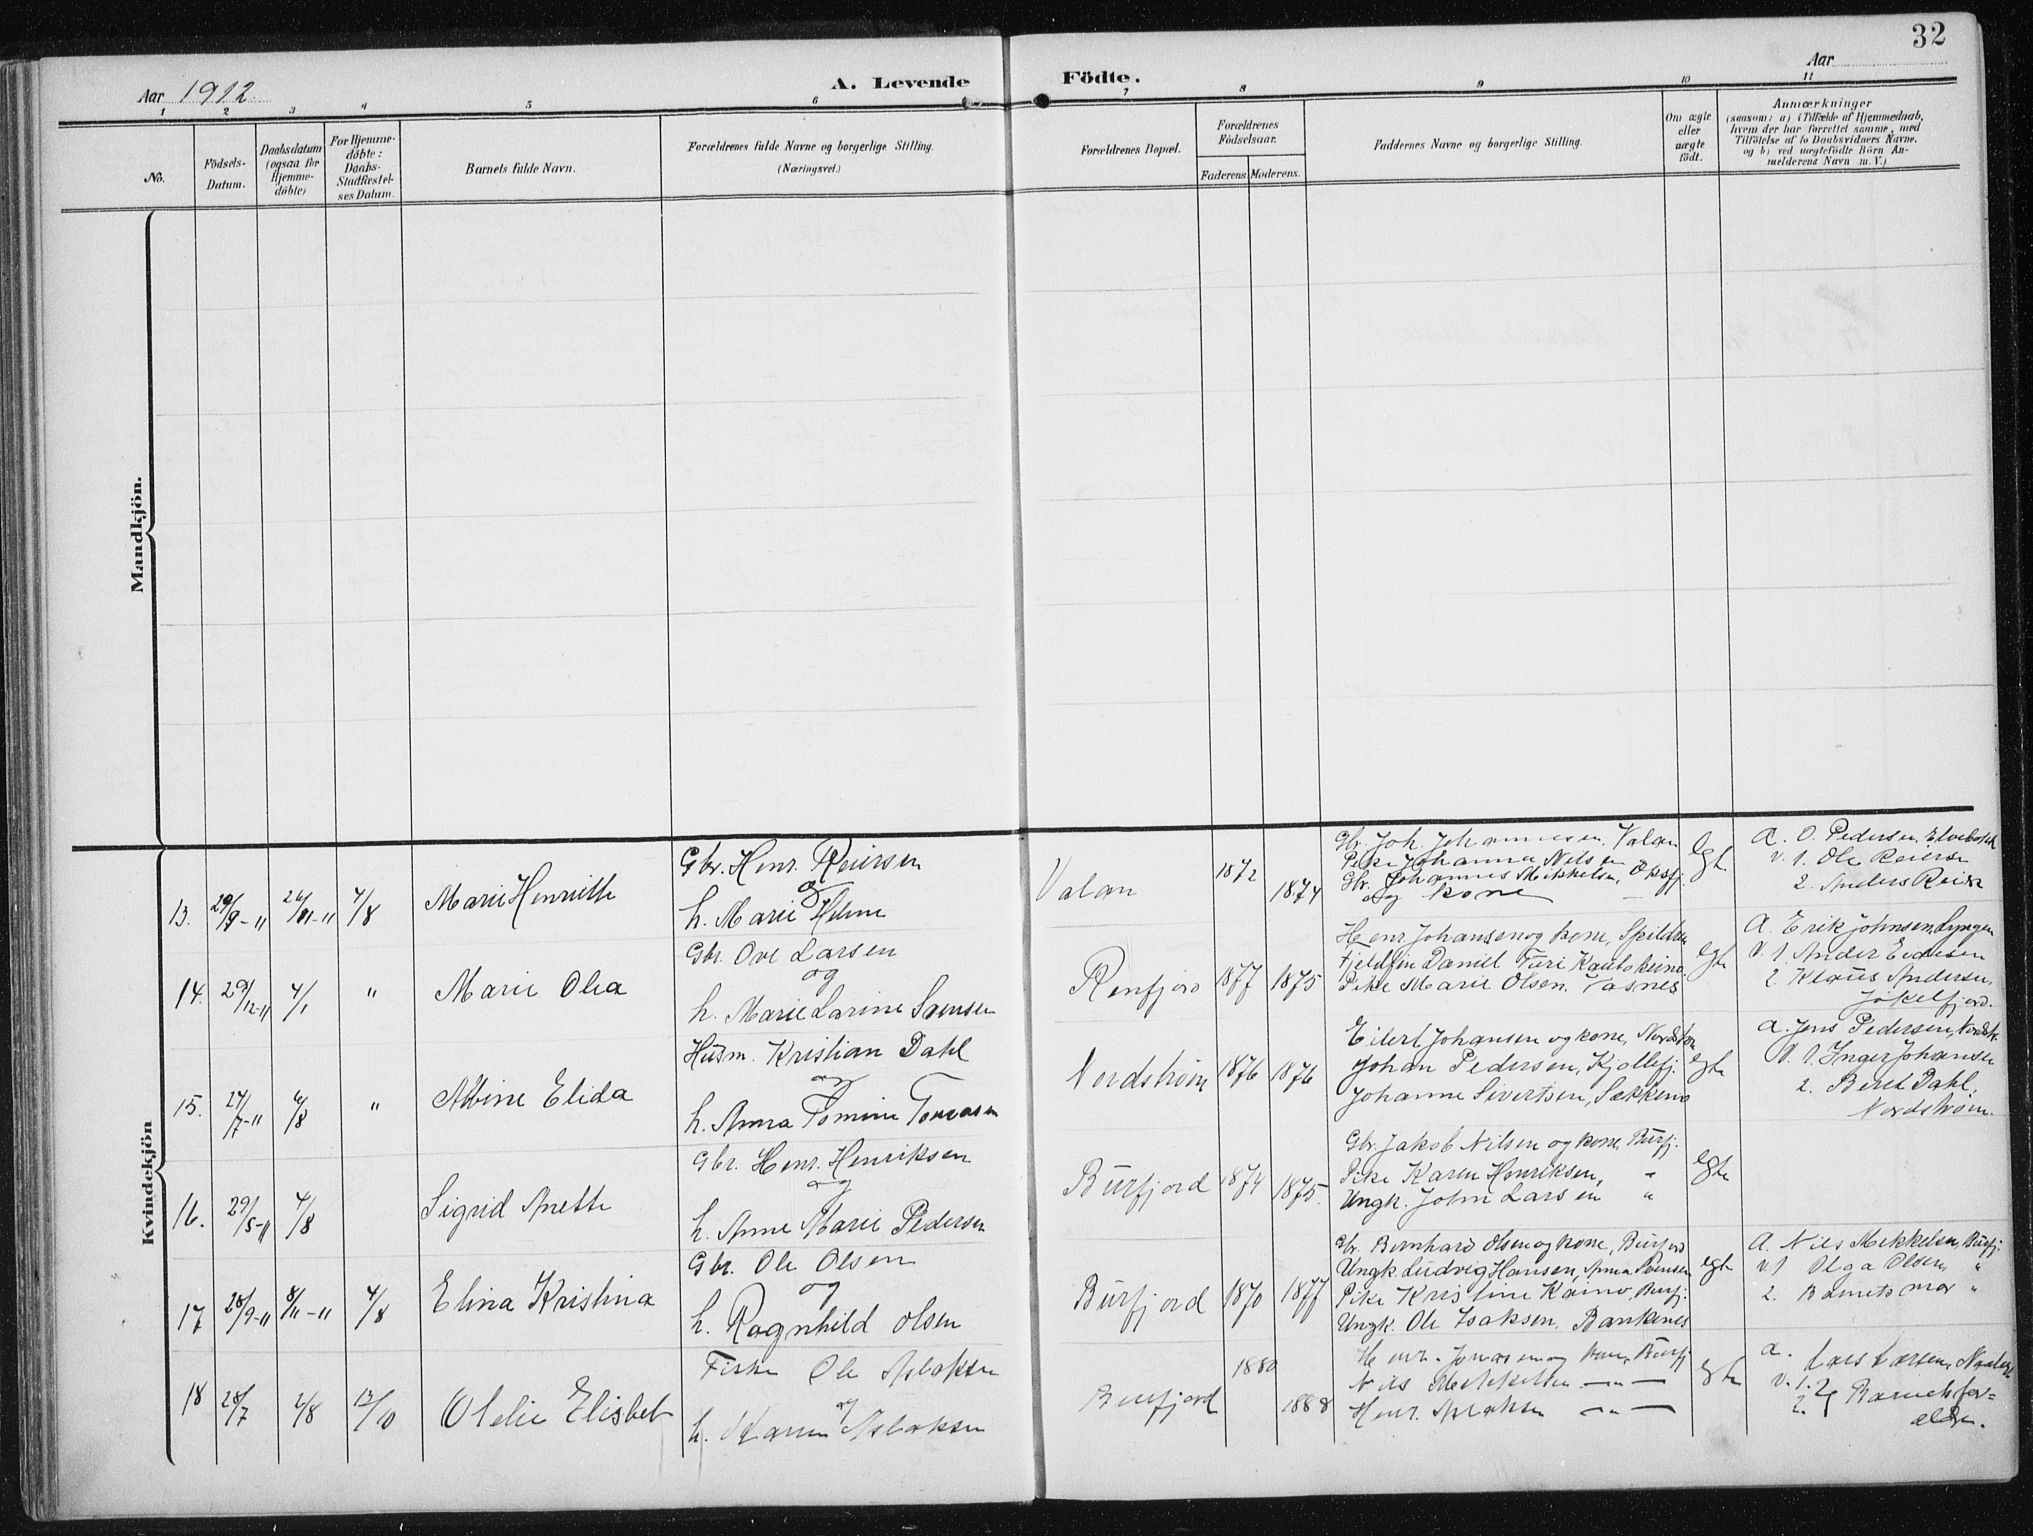 32
Aar 1912.
A. Levende Födte.
Aar
1 2 3 4 5 6 7 8 9 10 11
No.
Födsels-Datum.
Daabsdatum (ogsaa for Hjemme-döbte)
For Hjemme-döbte: Daabs-Stadfæstel-ses Datum.
Barnets fulde Navn.
Forældrenes fulde Navne og borgerlige Stilling.
(Næringsvei.)
Forældrenes Bopæl.
Forældrenes Födselsaar.
Faderens. Moderens.
Faddernes Navne og borgerlige Stilling.
Om ægte eller uægte födt.
Anmærkninger
(saasom: a) i Tilfælde af Hjemmedaab,
hvem der har forrettet samme, med
Tilföielse af to Daabsvidners Navne.
og b) ved uægtefödte Börn An-
melderens Navn m. V.)
Mandkjön.
Kvindekjön
13. 29/9-11 26/11-11 4/8
Marie Henriette
Gbr. Henr. Reiersen
og
h. Marie Helene
Valan
1872
1874
Gbr. Joh. Johannesen, Valan
Pike Johanna Nilsen
Gbr. Johannes Mikkelsen, Oksfj.
og kone
egte
A. O. Pedersen,
v. 1. Ole
2. Anders
14. 29/12-11 4/1 "
Marie Olea
Gbr. Ove Larsen
og
h. Marie Larine
Renfjord
1877 1875
Henr. Johansen og kone, Spildren
Fjeldfin Daniel Turi Kautokeino
Pike Marie Olsen.
egte
A. Erik Johnsen, Lyngen
v. 1 Ander
2. Klaus Andersen,
Jøkelfjord.
15. 24/7-11 4/8 "
Albine Elida
Husm. Kristian Dahl
og
h. Anna Tomine Tomasen
Nordstrøm
1876 1876
Eilert Johansen og kone,
Johan Pedersen, Kjøllefj.
Johanne Sivertsen,
egte
A. Jens Pedersen,
v. 1 Inger Johansen
2. Beret Dahl,
Nordstrøm.
16. 29/5-11 4/8
Sigrid Anette
Gbr. Henr. Henriksen
og
h. Anne Marie Pedersen
Burfjord
1874 1875.
Gbr. Jakob Nilsen og kone, Burfj.
Pike Karen Henriksen, "
Ungk. John Larsen "
egte
17 28/9-11 8/11-11 4/8
Elina Kristina
Gbr. Ole Olsen
og
h. Ragnhild Olsen
Burfjord
1870 1877
Gbr. Bernhard Olsen og kone, Burfjord
Ungk. Ludvig Hansen, Anna
Pike Kristine Kaino, Burfj.
Ungk. Ole Isaksen.
egte
A. Nils Mikkelsen, Burfj.
v. 1 Olga Olsen, "
2. Barnets mor "
18 28/7 2/8 13/10
Olelie Elisbet
Fisker Ole Aslaksen
og
h. Karen Aslaksen
Burfjord
1880
1888
Henr. Jonasen og kone, Burfj
Nils Mikkelsen — " —
Henr. Aslaksen — " —
egte
a. Lars Larsen,
v. 1. 2.
Barnets for=
ældre.